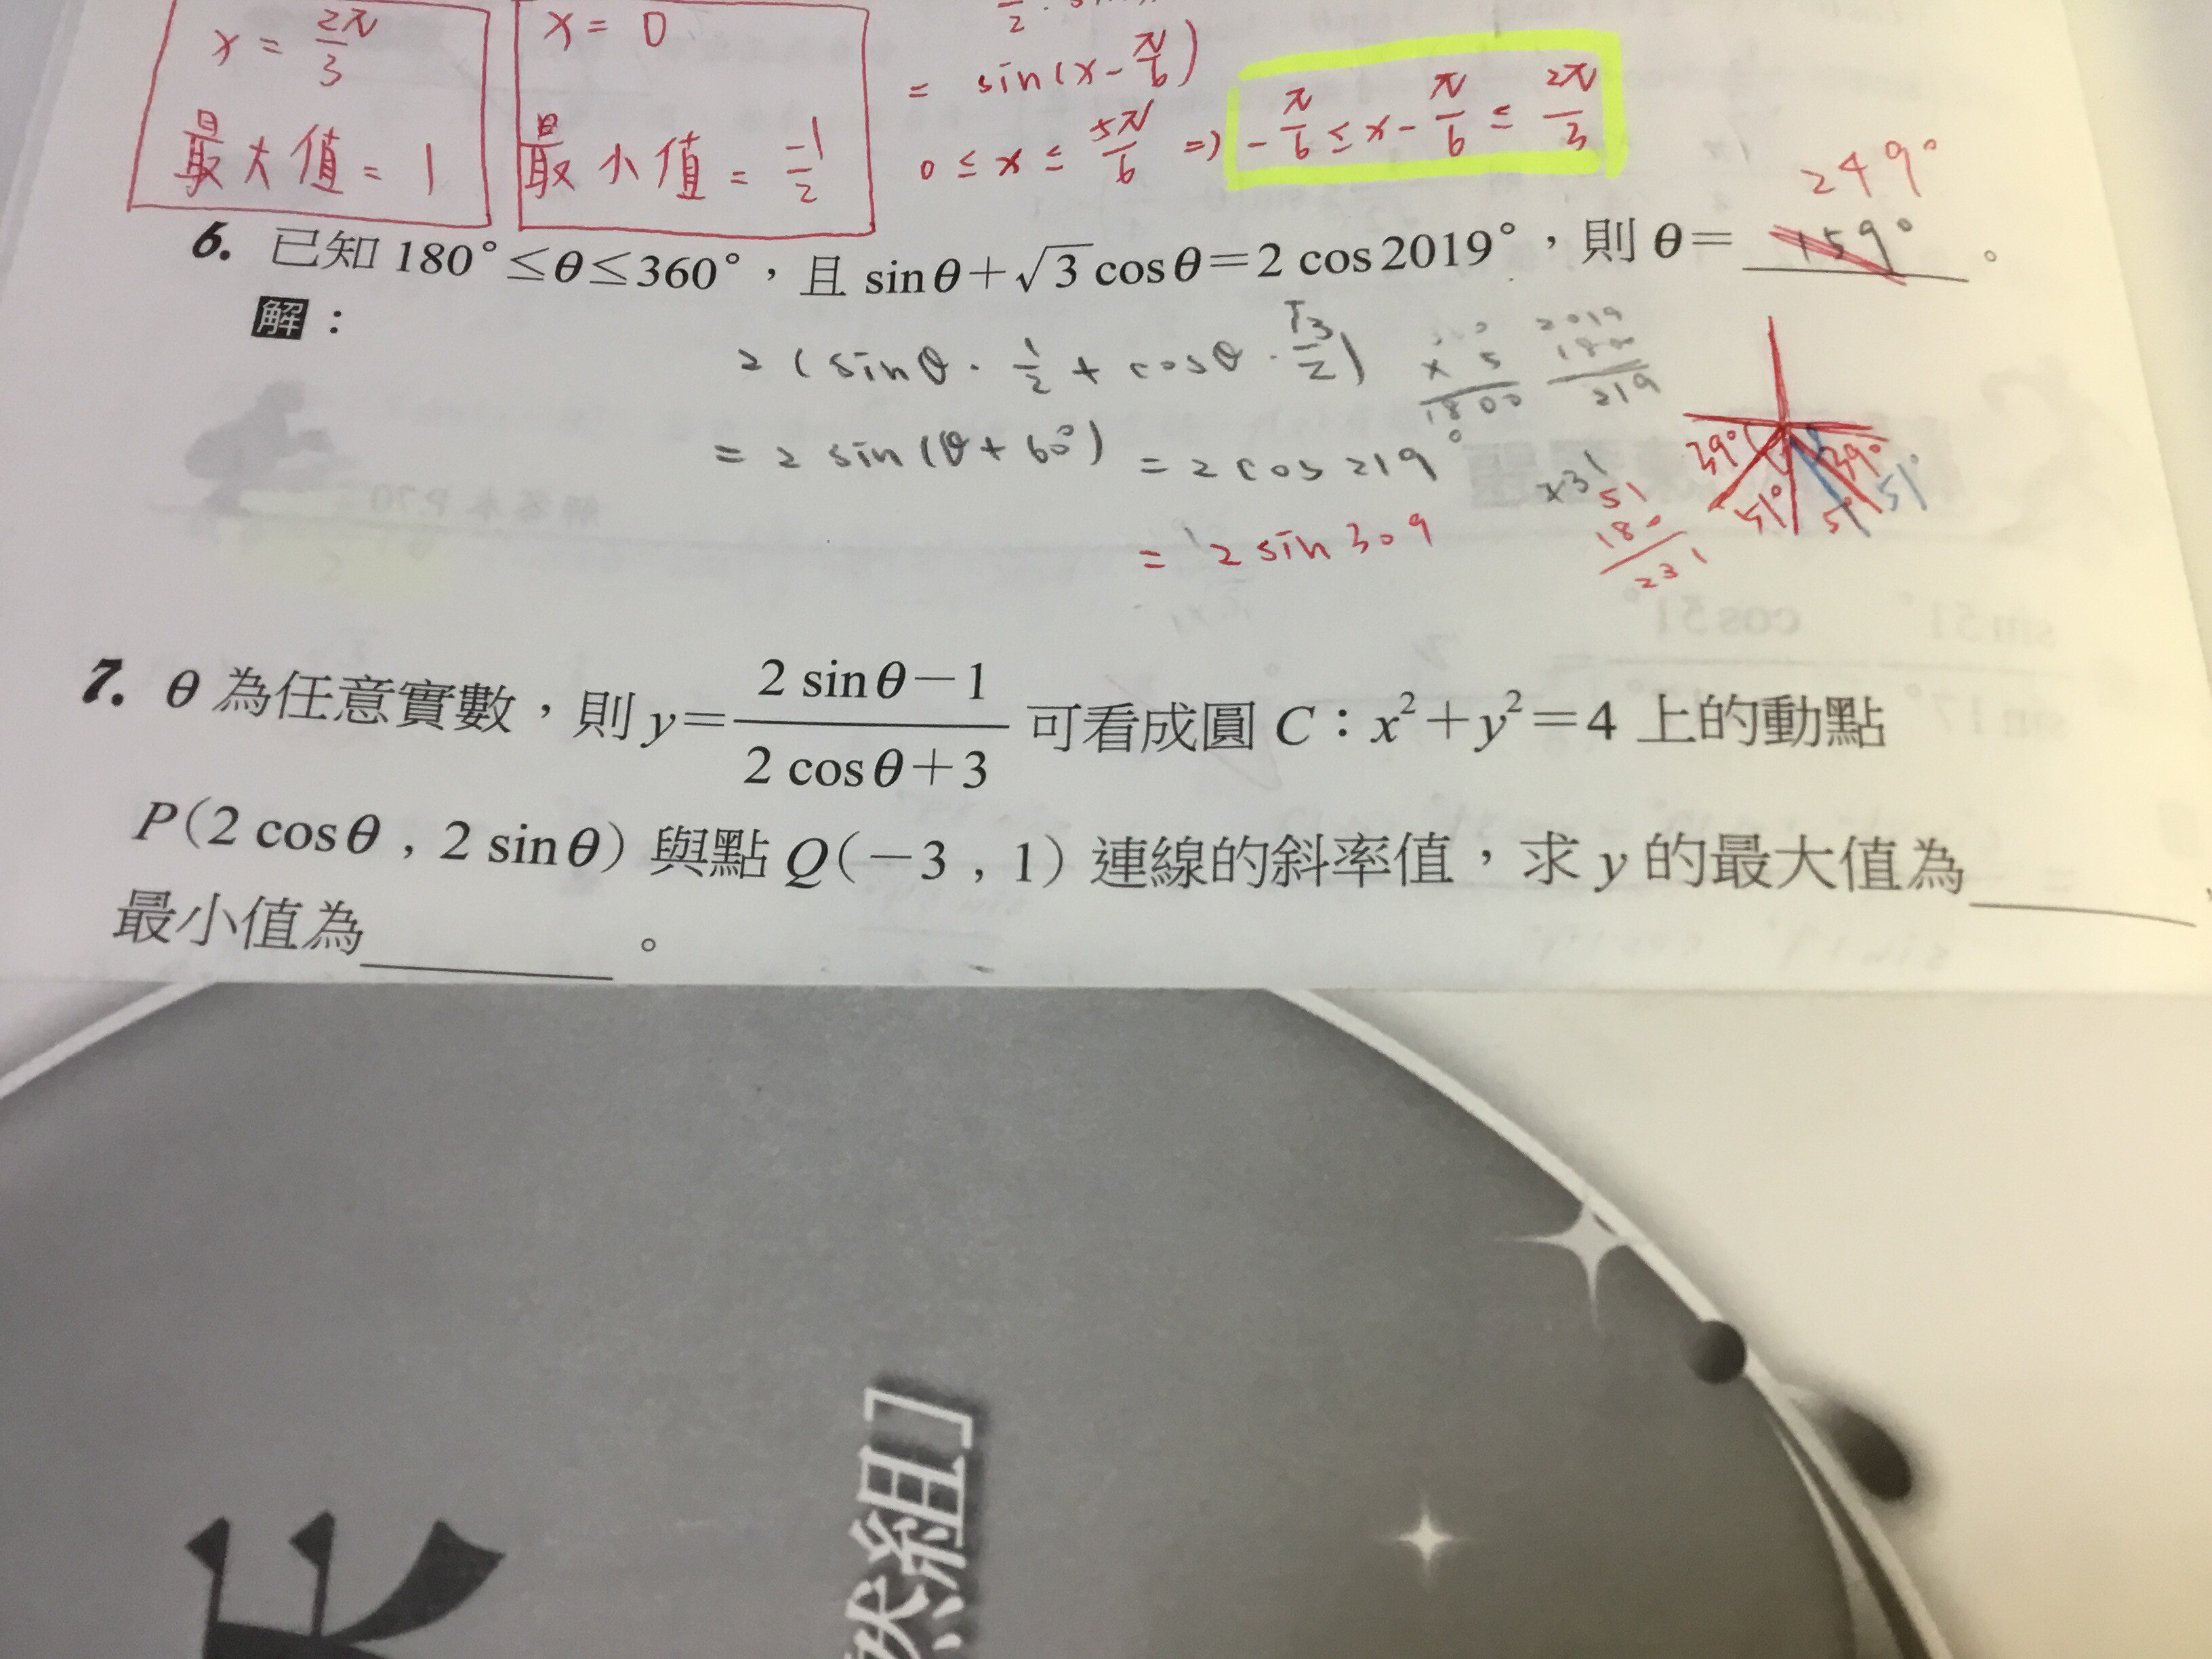 x = 2π/3
最大值 = 1
x = 0
最小值 = -1/2
= sin(x - π/6)
0 ≤ x ≤ 5π/6 => -π/6 ≤ x - π/6 ≤ 2π/3
249°
6. 已知 180°≤θ≤360°，且 sinθ+√3 cosθ=2 cos2019°，則 θ= 159°。
解：
2 (sinθ · 1/2 + cosθ · √3/2)
= 2 sin(θ + 60°) = 2 cos 219°
= 2 sin 309
x 5
1800
2019
1800
219
51
180
231
39° 39°
51° 51° 51°
7. θ 為任意實數，則 y= (2 sinθ-1)/(2 cosθ+3) 可看成圓 C：x²+y²=4 上的動點
P(2 cosθ , 2 sinθ) 與點 Q(-3 , 1) 連線的斜率值，求 y 的最大值為
最小值為______。
解答本 P.70
sin51° cos51°
組]